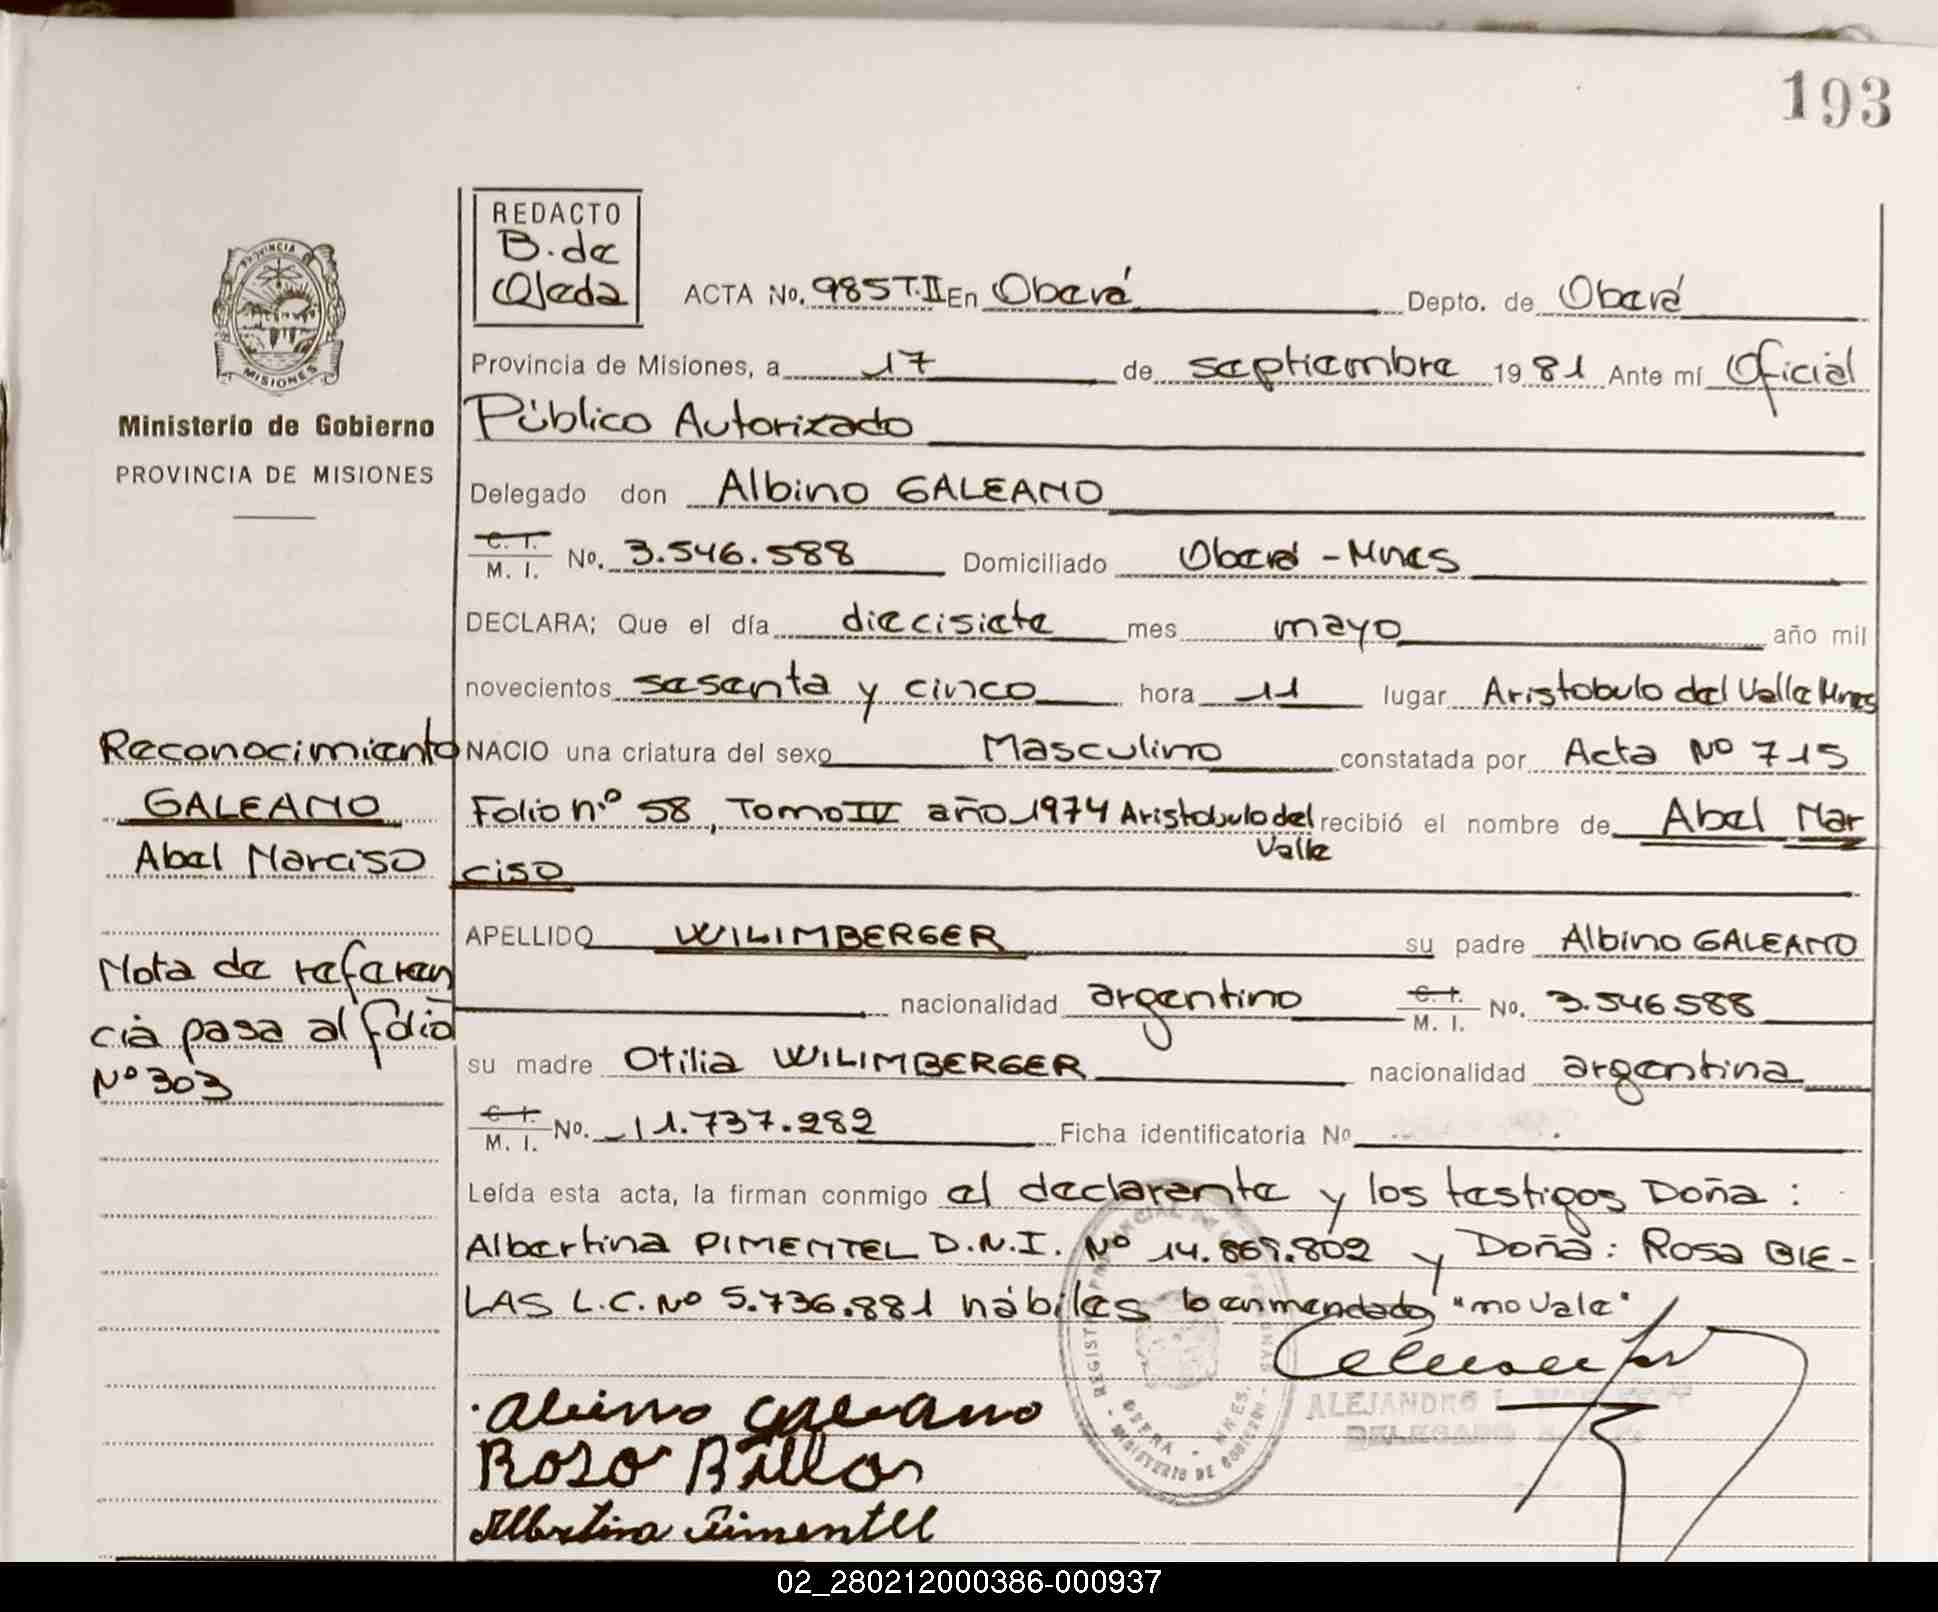 193
REDACTO
B. de
Ojeda
ACTA No. 985 T.II En Oberá Depto. de Oberá
Provincia de Misiones, a 17 de septiembre 1981 Ante mí Oficial
Público Autorizado
Ministerio de Gobierno
PROVINCIA DE MISIONES
Delegado don Albino GALEANO
C. I. M. I. No. 3.546.588 Domiciliado Oberá - Mnes
DECLARA; Que el día diecisiete mes mayo año mil
novecientos sesenta y cinco hora 11 lugar Aristobulo del Valle Mnes
Reconocimiento
GALEANO
Abel Narciso
NACIO una criatura del sexo Masculino constatada por Acta Nº 715
Folio n.º 58, Tomo IV año 1974 Aristobulo del Valle recibió el nombre de Abel Nar
ciso
APELLIDO WILIMBERGER su padre Albino GALEANO
Nota de referen
cia pasa al folio
Nº 303
nacionalidad argentino C. I. M. I. No. 3.546.588
su madre Otilia WILIMBERGER nacionalidad argentina
C. I. M. I. No. 11.737.282 Ficha identificatoria No
Leída esta acta, la firman conmigo el declarante y los testigos Doña:
Albertina PIMENTEL D.N.I. Nº 14.869.802 y Doña: Rosa BIE-
LAS L.C. Nº 5.736.881 hábiles lo enmendado "mo vale"
ALEJANDRO
DELEGADO
Albino Galeano
Rosa
Albertina Pimentel
02_280212000386-000937